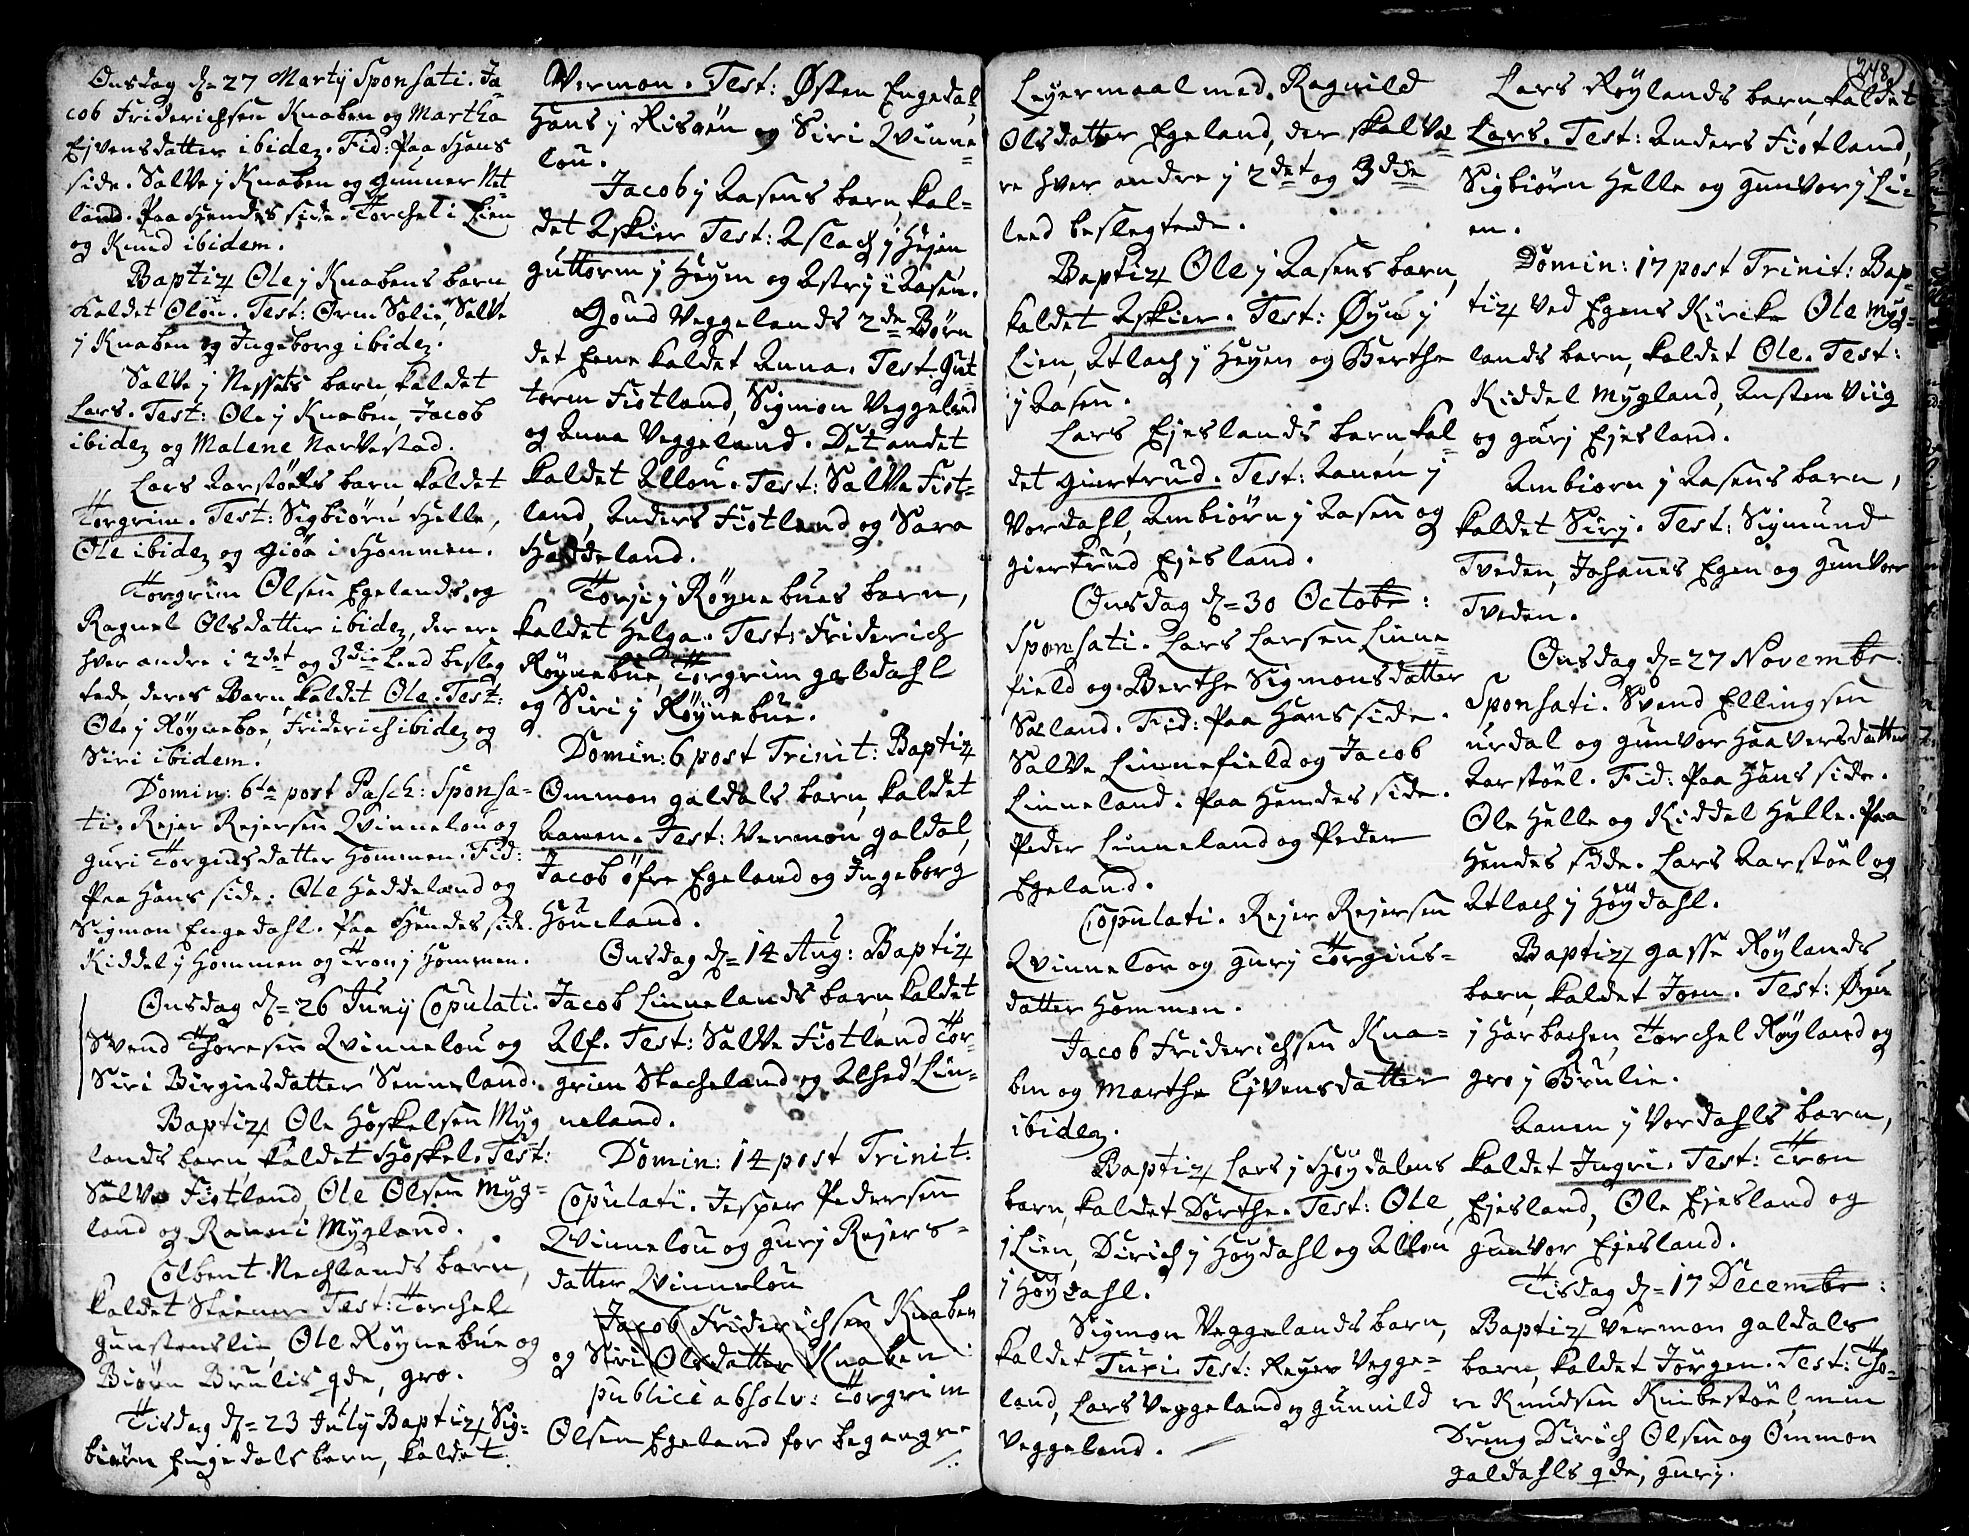 Onsdag d. 27 Martij Sponsati. Ja-
cob Friderichsen Knaben og Martha
Ejvensdatter ibidem. Fid: Paa Hans
side. Salve j Knaben og Gunner Net
land. Paa Hendes side. Torchel i Lien
og Knud ibidem.
Baptiz. Ole j Knabens barn
kaldet Olou. Test: Orm Solie, Salve
j Knaben og Ingeborg ibidem.
Salve j Nessets barn, kaldet
Lars. Test: Ole j Knaben, Jacob
ibidem og Malene Narvestad.
Lars Aarstöels barn, kaldet
Torgrim. Test: Sigbiörn Helle,
Ole ibidem og Giöa i Hommen.
Torgrim Olsen Egelands og
Ragnel Olsdatter ibidem, der ere
hver andre i 2det og 3die Leed besleg
tede, deres Barn, kaldet Ole. Test:
Ole j Röyneboe, Friderich ibidem og
Siri ibidem.
Domin: 6te post Pasch: Sponsa-
ti. Rejer Rejersen Qvinnelou og
Guri Torgiusdatter Hommen. Fid:
Paa Hans side: Ole Haddeland og
Sigmon Engedahl. Paa Hendes side.
Kiddel j Hommen og Tron j Hommen.
Onsdag d. 26 Junij Copulati.
Svend Thoresen Qvinnelou og
Siri Birgiesdatter Senneland.
Baptiz. Ole Hoskelsen Myg
lands barn, kaldet Hoskel. Test:
Salve Fiotland, Ole Olsen Myg-
land og Rannei Mygland.
Colbent Nechlands barn,
kaldet Steener Test: Torchel
Gunstenslie, Ole Röynebue og
Biörn Brulis qde, Gro.
Tisdag d. 23 July Baptiz. Sig-
biörn Engedals barn, kaldet
Vermon. Test: Østen Engedal,
Hans j Risöen og Siri Qvinne-
lou.
Jacob j Aasens barn, kal-
det Askier Test: Aslach j Heyen
Guttorm j Heyen og Astrj i Aasen.
Goud Veggelands 2de Börn
det Eene kaldet Anna. Test Gut
torm Fiotland, Sigmon Veggeland
og Anne Veggeland. Det andet
kaldet Allou. Test: Salve Fiot-
land, Anders Fiotland og Sara
Haddeland.
Torje j Röynebues barn,
kaldet Helga. Test: Friderich
Röynebue, Torgrim Galdahl
og Siri j Röynebue.
Domin: 6 post Trinit: Baptiz.
Ommon Galdals barn, kaldet
Aanen. Test: Vermon Galdal,
Jacob öfre Egeland og Ingeborg
Houeland.
Onsdag d. 14 Aug: Baptiz.
Jacob Linnelands barn, kaldet
Alf. Test: Salve Fiotland Tor-
grim Stacheland og Alhed Lin-
neland.
Domin: 14 post Trinit:
Copulati. Jesper Pedersen
Qvinnelou og Gurj Rejers-
datter Qvinnelou
Jacob Friderichsen Knaben
og Siri Olsdatter Knaben
publicè absolv: Torgrim
Olsen Egeland for begangne
248
Leyermaal med. Ragnild
Olsdatter Egeland, der skal væ-
re hver andre j 2det og 3die
leed beslegtede.
Baptiz. Ole j Aasens barn,
kaldet Askier. Test: Øyu j
Lien, Atlach j Heyen og Berthe
j Aasen.
Lars Ejeslands barn, kal-
det Giertrud. Test: Aanen j
Vordahl, Ambiörn j Aasen og
Giertrud Ejesland.
Onsdag d. 30 Octobr:
Sponsati. Lars Larsen Linne-
field og Berthe Sigmonsdatter
Soeland. Fid: Paa Hans side.
Salve Linnefield og Jacob
Linneland. Paa Hendes side.
Peder Linneland og Peder
Egeland.
Copulati. Rejer Rejersen
Qvinnelou og Gurj Torgius-
datter Hommen.
Jacob Friderichsen Kna-
ben og Marthe Ejvensdatter
ibidem.
Baptiz. Lars j Höydalens
barn, kaldet Dorthe. Test: Ole
j Lien, Dirich j Höydahl og Allou
j Höydahl.
Sigmon Veggelands barn,
kaldet Turi. Test: Rejer Vegge-
land, Lars Veggeland og Gunnild
Veggeland.
Lars Röylands barn, kaldet
Lars. Test: Anders Fiotland,
Sigbiörn Helle og Gunvor j Li-
en.
Domin: 17 post Trinit: Bap-
tiz. ved Egens Kircke Ole Myg-
lands barn, kaldet Ole. Test:
Kiddel Mygland, Austen Viig
og Gurj Ejesland.
Ambiorn j Aasens barn,
kaldet Sirj. Test: Sigmund
Tveden, Johannes Egen og Gunvor
Tveden.
Onsdag d. 27 Novembr:
Sponsati. Svend Ellingsen
Urdal og Gunvor Haaversdatter
Aarstöel. Fid: Paa Hans side.
Ole Helle og Kiddel Helle. Paa
Hendes side. Lars Aarstöel og
Atlach j Höydahl.
Baptiz. Gasse Röylands
barn, kaldet Joen. Test: Øyu
j Harbachen, Torchel Röyland og
Gro j Brulie.
Aanen j Vordahls barn,
kaldet Ingri. Test: Tron
Ejesland, Ole Ejesland og
Gunvor Ejesland.
Tisdag d. 17 Decembr:
Baptiz. Vermon Galdals
barn, kaldet Jörgen. Test: Tho-
re Knudsen Knibestöel, min
Dreng Dirich Olsen og Ommon
Galdahls qde, Gurj.